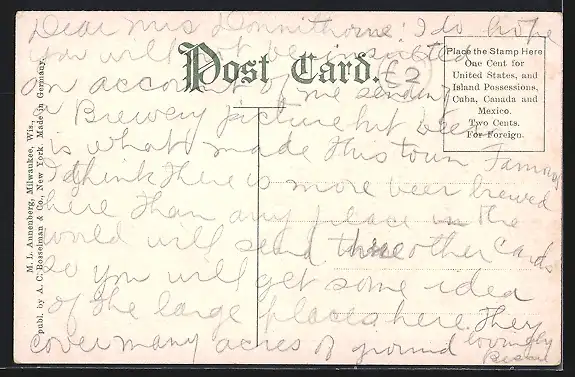 Dear Mrs Donnithorne: I do hope
you will not be insulted
on account of me sending
a Brewery picture but beer
is what made this town famous
I think there is more beer brewed
here than any place in the
world will send three other cards
so you will get some idea
of the large places here. They
cover many acres of ground lovingly
Post Card.
£2
Place the Stamp Here
One Cent for
United States, and
Island Possessions,
Cuba, Canada and
Mexico.
Two Cents.
For Foreign.
M. L. Annenberg, Milwaukee, Wis.,
publ. by A. C. Bosselman & Co., New York Made in Germany.